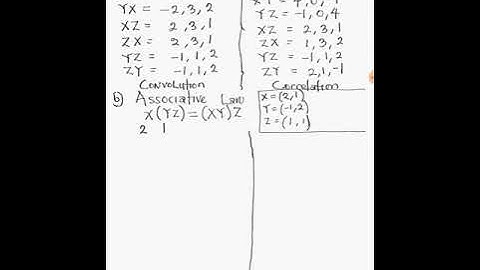 YX = -2,3,2
XZ = 2,3,1
ZX = 2,3,1
YZ = -1,1,2
ZY = -1,1,2
Convolution
YZ = -1,0,4
XZ = 2,3,1
ZX = 1,3,2
YZ = -1,1,2
ZY = 2,1,-1
Correlation
b) Associative Law
X(YZ) = (XY)Z
2 1
X = (2,1)
Y = (-1,2)
Z = (1,1)